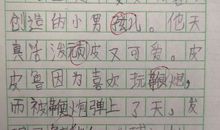 创造的小男孩儿。他天
真活泼顽皮又可爱。皮
皮鲁因为喜欢玩鞭炮,
而被鞭炮弹上了天,发